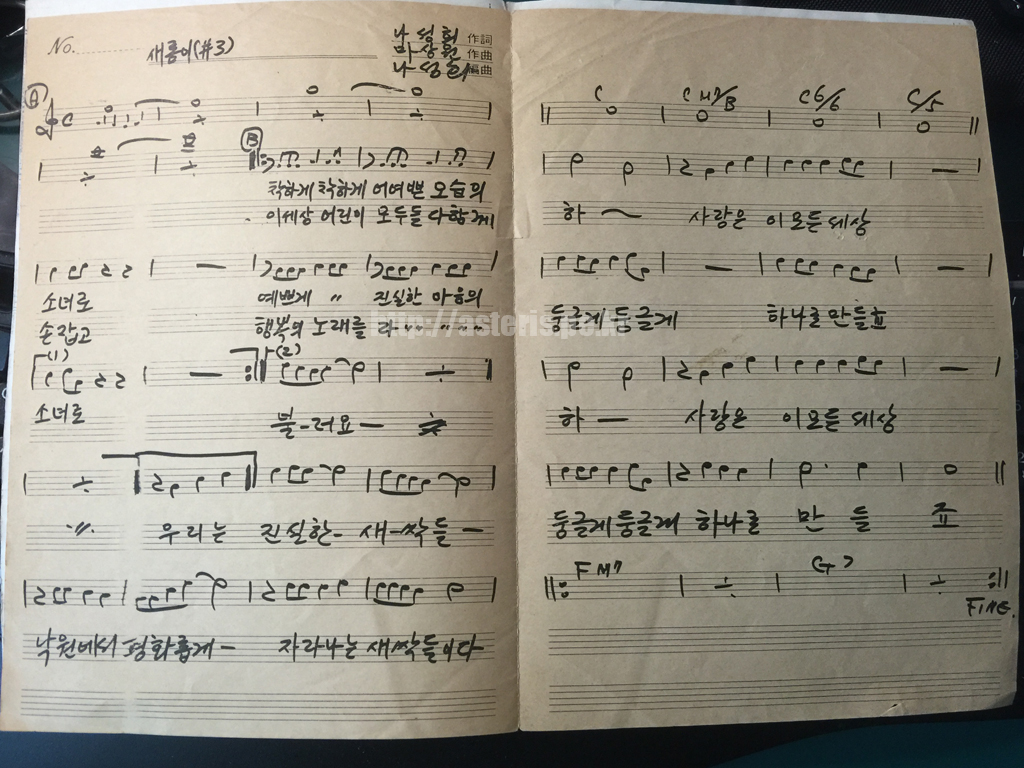 No.
새롬이(#3)
나성희 作詞
마상원 作曲
나성희 編曲
A
B
착하게 착하게 어여쁜 모습의
이세상 어린이 모두들 다함께
소녀로 예쁘게 〃 진실한 마음의
손잡고 행복의 노래를 라 〃 〃 〃 〃 〃
(1) (2)
소녀로 불-러요-
우리는 진실한- 새-싹들-
낙원에서 평화롭게- 자라나는 새싹들이다
C CM7/B C6/6 C/5
하~ 사랑은 이모든세상
둥글게 둥글게 하나로 만들죠
하- 사랑은 이모든 세상
둥글게둥글게 하나로 만 들 죠
FM7 G7
FINE.
http://asterisk.pe.kr